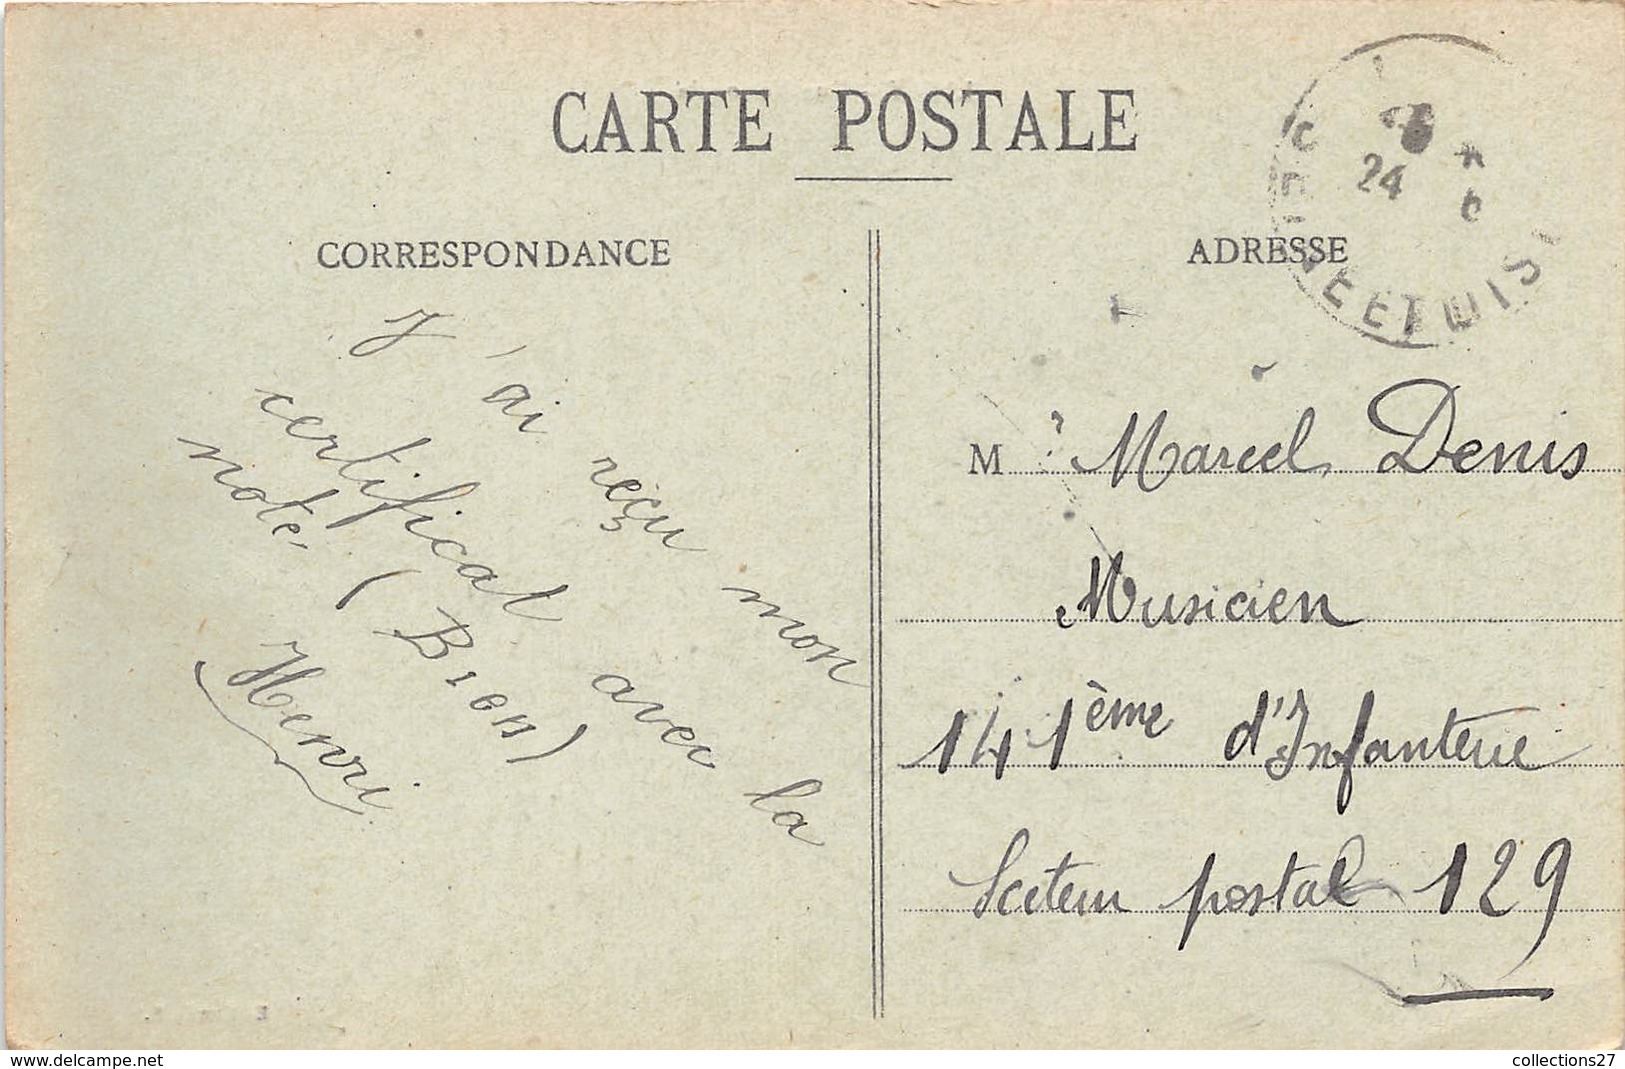 CARTE POSTALE
CORRESPONDANCE
J'ai reçu mon
certificat avec la
note. (Bien)
Henri
ADRESSE
24
M Marcel Denis
Musicien
141ème d'Infanterie
Secteur postal 129
www.delcampe.net
collections27